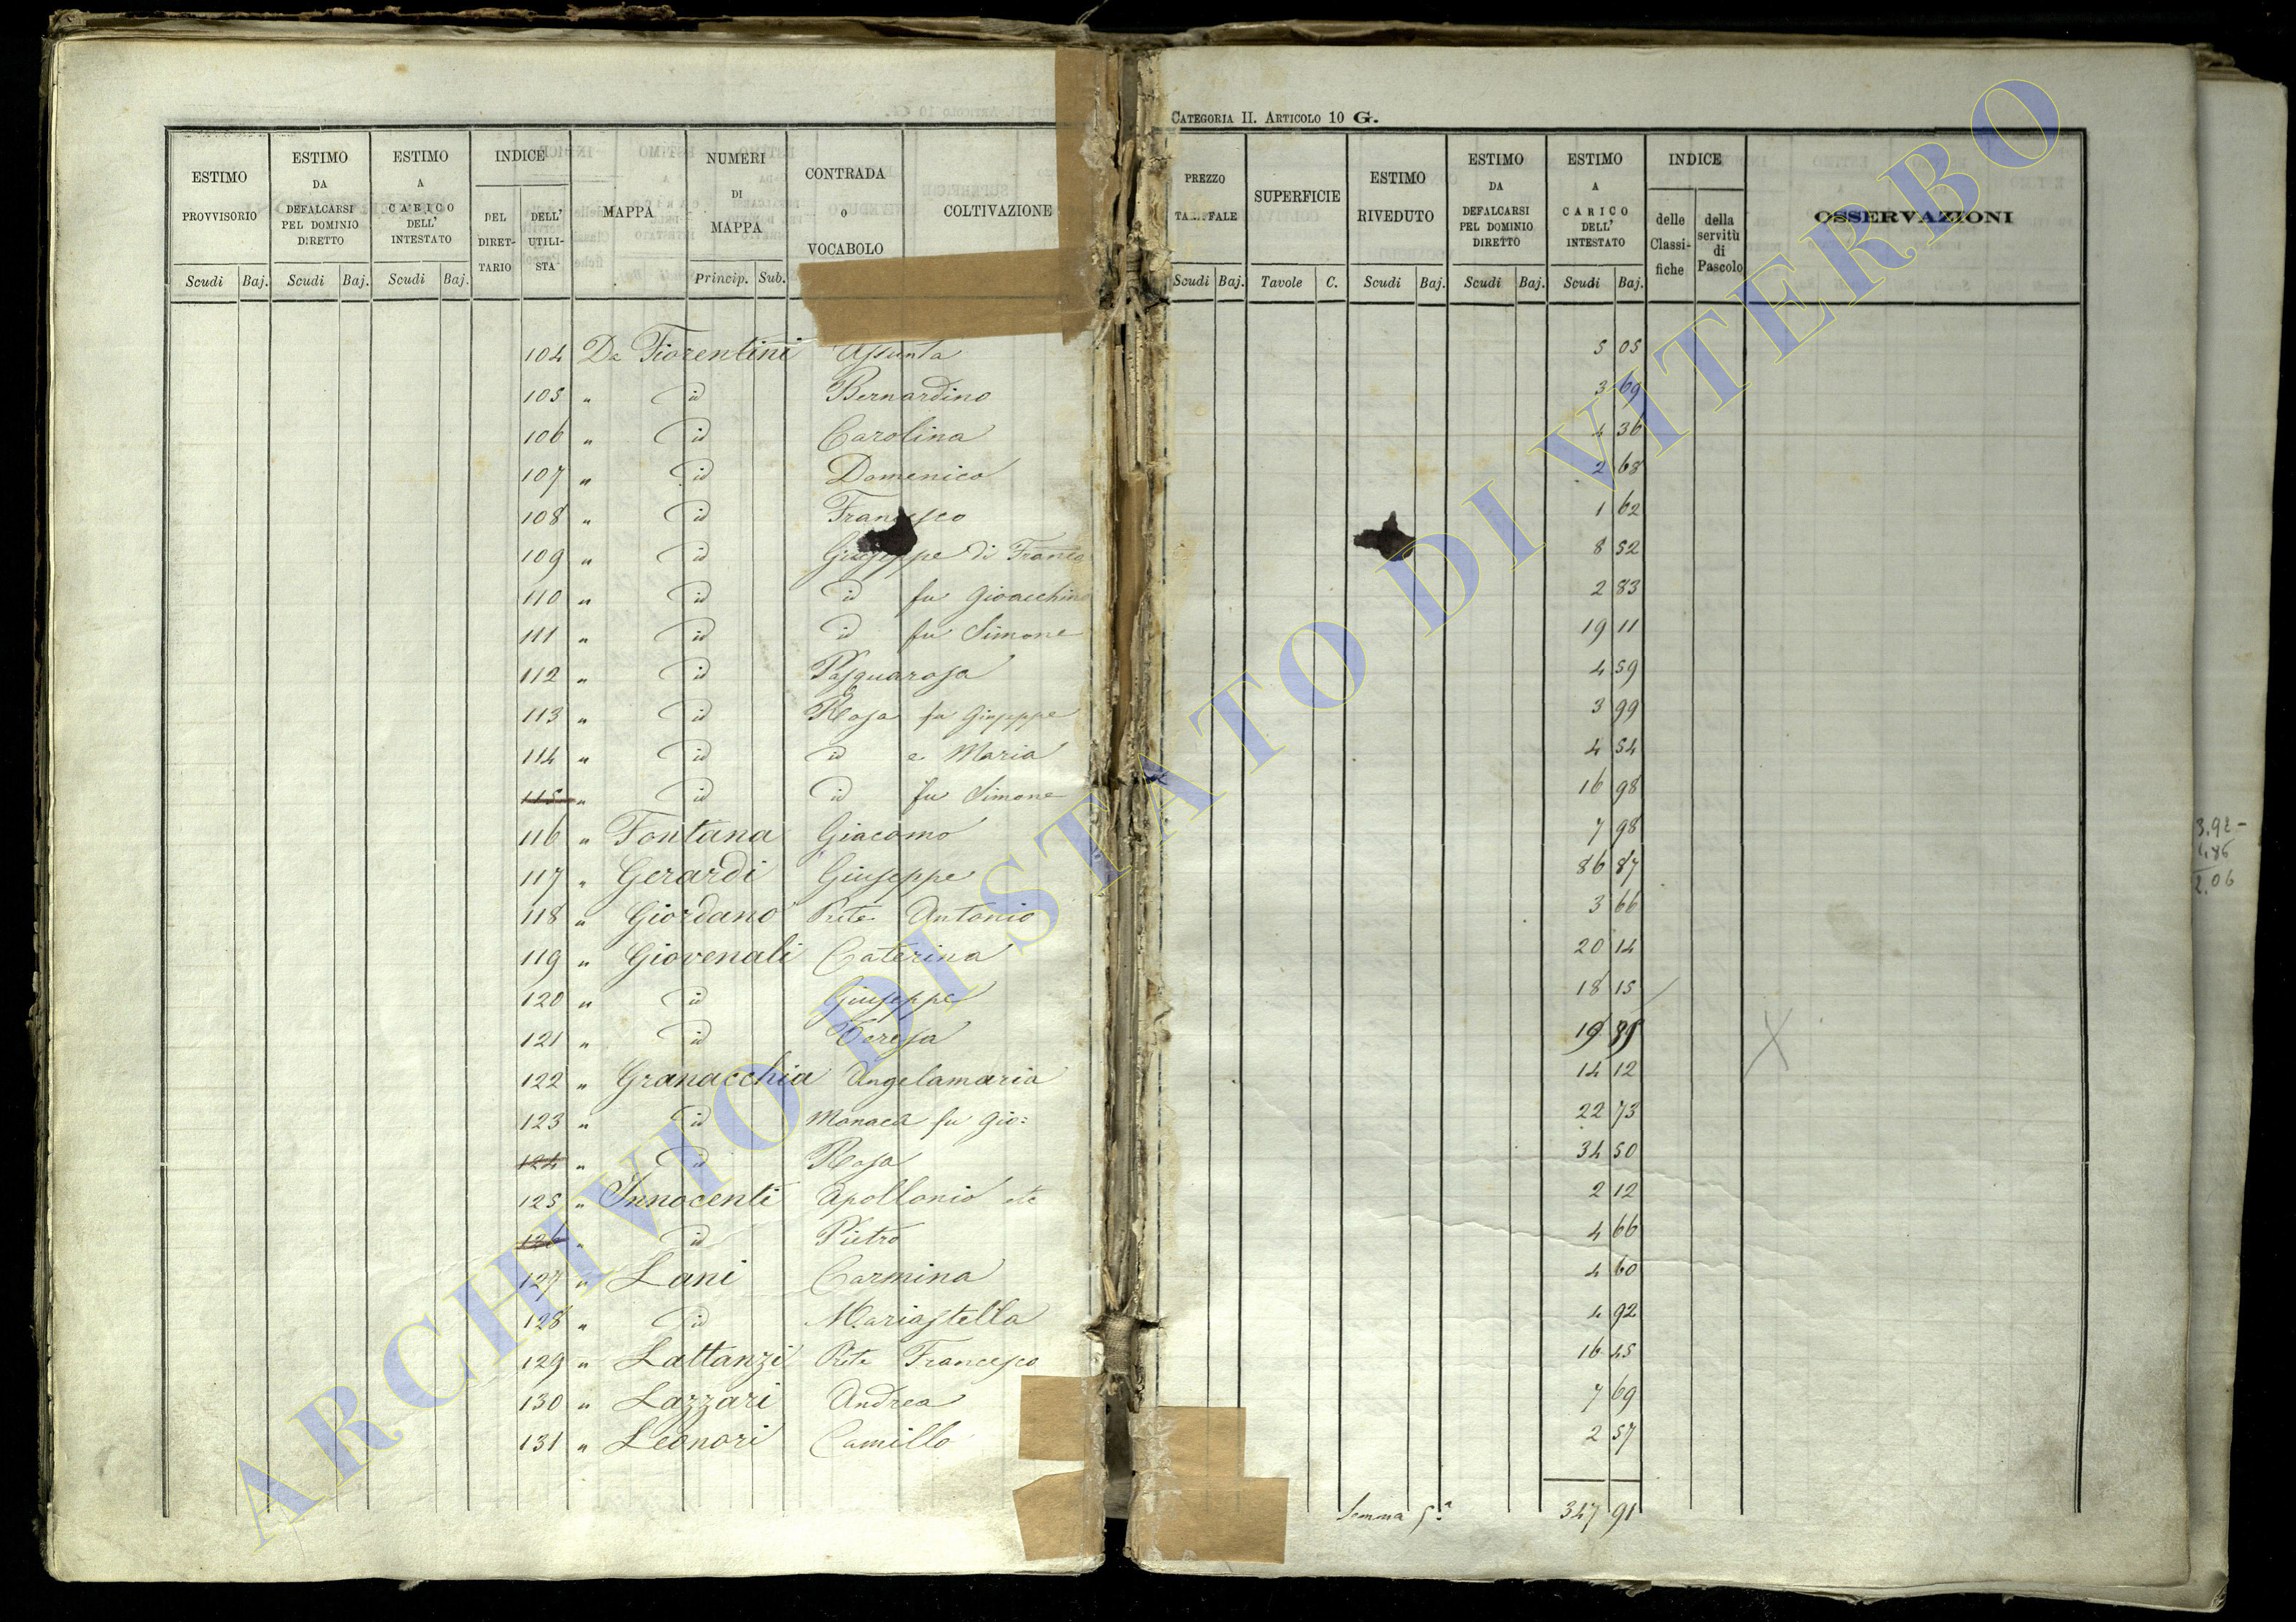 CATEGORIA II. ARTICOLO 10 G.
ESTIMO PROVVISORIO Scudi Baj.
ESTIMO DA DEFALCARSI PEL DOMINIO DIRETTO Scudi Baj.
ESTIMO A CARICO DELL' INTESTATO Scudi Baj.
INDICE DEL DIRET-TARIO DELL' UTILI-STA
MAPPA
NUMERI DI MAPPA Princip. Sub.
CONTRADA O VOCABOLO
COLTIVAZIONE
PREZZO Scudi Baj.
SUPERFICIE Tavole C.
ESTIMO RIVEDUTO Scudi Baj.
ESTIMO DA DEFALCARSI PEL DOMINIO DIRETTO Scudi Baj.
ESTIMO A CARICO DELL' INTESTATO Scudi Baj.
INDICE delle Classi-fiche della servitù di Pascolo
OSSERVAZIONI
104 Da Fiorentini Assunta 5 05
105 " id Bernardino 3 69
106 " id Carolina 4 36
107 " id Domenico 2 68
108 " id Francesco 1 62
109 " id Giuseppe di Franco 8 52
110 " id id fu Gioacchino 2 83
111 " id id fu Simone 19 11
112 " id Pasquarosa 4 59
113 " id Rosa fu Giuseppe 3 99
114 " id id e Maria 4 54
115 " id id fu Simone 16 98
116 " Fontana Giacomo 7 98
117 " Gerardi Giuseppe 86 87
118 " Giordano Prete Antonio 3 66
119 " Giovenali Caterina 20 14
120 " id Giuseppe 18 15
121 " id Teresa 19 89
122 " Granacchia Angelamaria 14 12
123 " id Monaca fu Gio: 22 73
124 " id Rosa 34 50
125 " Innocenti Apollonio etc 2 12
126 " id Pietro 4 66
127 " Lani Carmina 4 60
128 " id Mariastella 4 92
129 " Lattanzi Prete Francesco 16 45
130 " Lazzari Andrea 7 69
131 " Leonori Camillo 2 57
Somma 5.a 347 91
3.92 -
1.86
2.06
ARCHIVIO DI STATO DI VITERBO